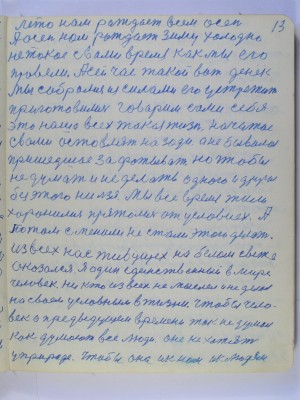 13
лето нам рождает всем осен
А осен нам рождает зиму холодно
не такое с вами время как мы его
провели. А сейчас такой вот денек
Мы собрались и силами его встретит
приготовимся говорим сами себя
это нашо всех такая жизн, начатое
с вами оставлят на зади, а не бывалое
пришедшее за
не думат и не делат одного и друго
без этого нилзя. Мы все время жили
хоронилис прятолис от условиех. А
потом с ними не стали этого делат.
Из всех нас живущих на белом свете
оказался я один единственный в мире
человек, ни кто из всех не мыслил и не делал
на своем условным в жизни. Чтобы чело-
век о предыдущем времени так не думал
как думают все люди. оне не хотят
у природе, чтобы она их как людей